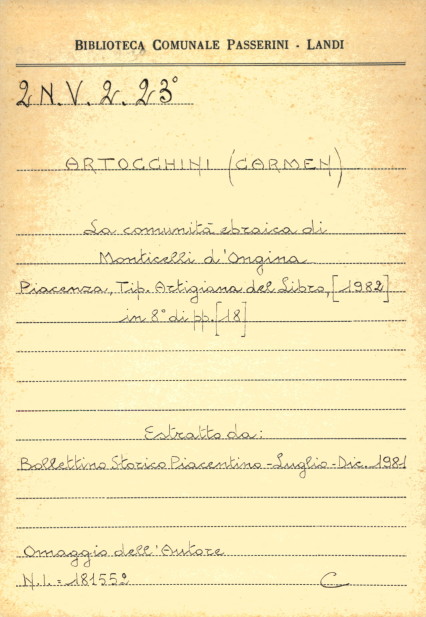 BIBLIOTECA COMUNALE PASSERINI - LANDI
2 N.V. 2. 23°
ARTOCCHINI (CARMEN)
La comunità ebraica di
Monticelli d'Ongina
Piacenza, Tip. Artigiana del Libro, [1982]
in 8° di pp. [18]
Estratto da:
Bollettino Storico Piacentino - Luglio - Dic. 1981
Omaggio dell'Autore
N.I. = 181552 C